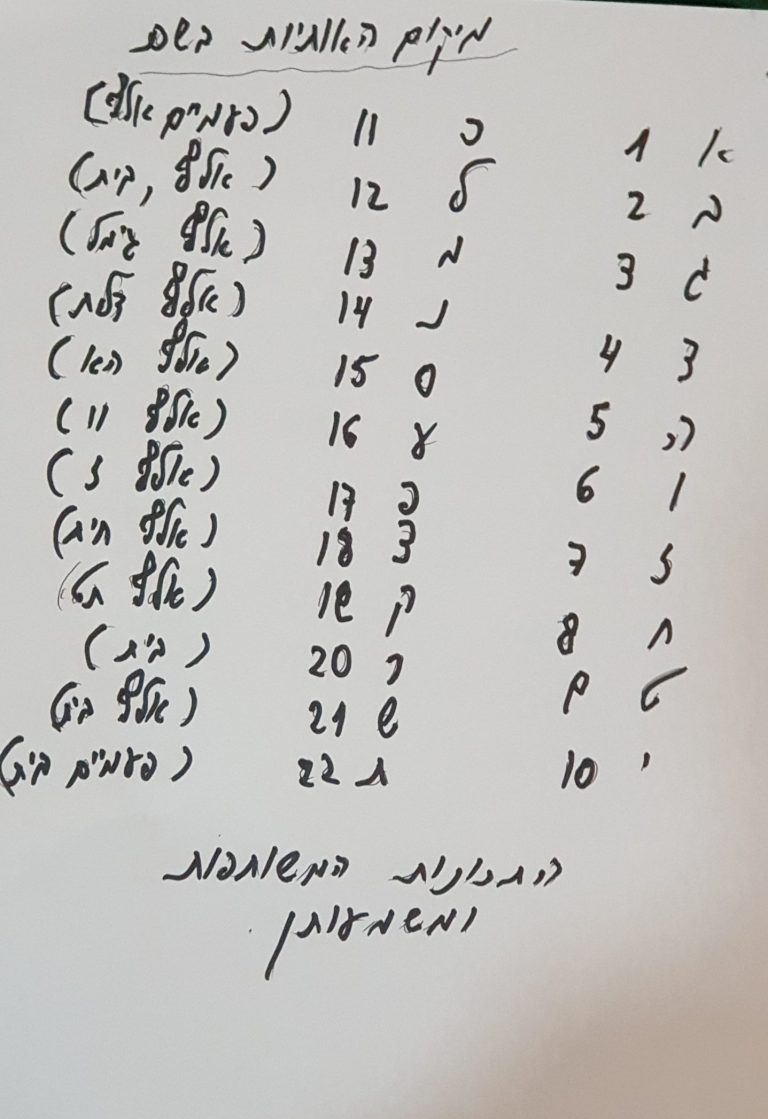 מיקום האותיות בשם
א 1
ב 2
ג 3
ד 4
ה 5
ו 6
ז 7
ח 8
ט 9
י 10
כ 11 (פעמיים אלף)
ל 12 (אלף, בית)
מ 13 (אלף גימל)
נ 14 (אלף דלת)
ס 15 (אלף הא)
ע 16 (אלף וו)
פ 17 (אלף ז)
צ 18 (אלף חית)
ק 19 (אלף תט)
ר 20 (בית)
ש 21 (אלף בית)
ת 22 (פעמיים בית)
התכונות המשותפות
ומשמעותן